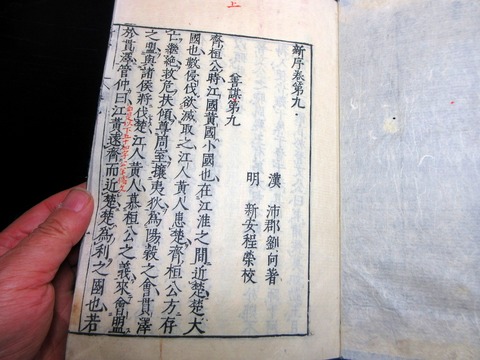 上
新序卷第九
漢 沛郡劉向著
明 新安程榮校
善謀第九
齊桓公時江國黃國小國也在江淮之間近楚楚大
國也數侵伐欲滅取之江人黃人患楚齊桓公方存
亡繼絶救危扶傾尊周室攘夷狄為陽穀之會貫澤
之盟與諸侯將伐楚江人黃人慕桓公之義來會盟
於貫澤管仲曰江黃遠齊而近楚楚為利之國也若